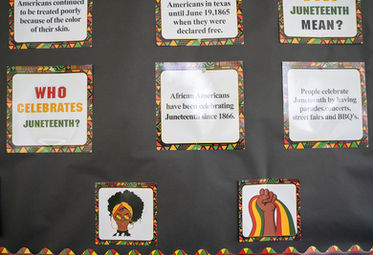 Americans continued
to be treated poorly
because of the color
of their skin.
Americans in texas
until June 19,1865
when they were
declared free.
JUNETEENTH
MEAN?
WHO
CELEBRATES
JUNETEENTH?
African Americans
have been celebrating
Juneteenth since 1866.
People celebrate
Juneteenth by having
parades,concerts,
street fairs and BBQ's.